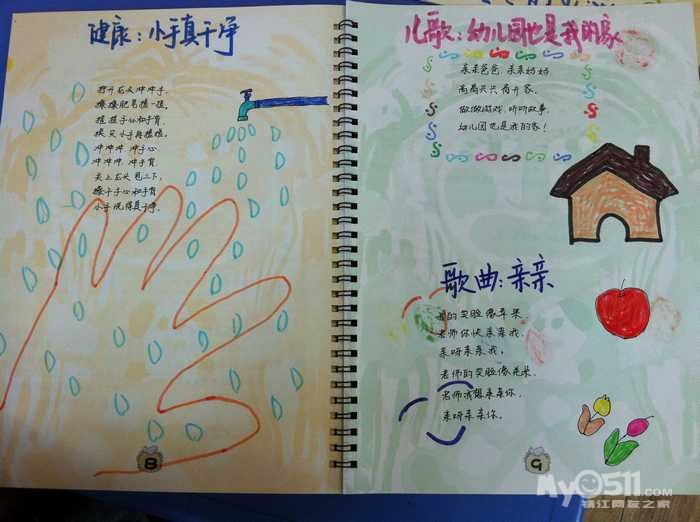 健康:小手真干净
打开龙头冲冲手,
擦擦肥皂搓一搓,
搓搓手心和手背,
换只小手再搓搓,
冲冲冲 冲手心
冲冲冲 冲手背
关上龙头甩三下,
擦干手心和手背
小手洗得真干净。
8
儿歌:幼儿园也是我的家
亲亲爸爸,亲亲妈妈
高高兴兴离开家.
做做游戏,听听故事.
幼儿园也是我的家!
歌曲:亲亲
我的笑脸像苹果
老师你快来亲我.
亲呀亲亲我,
老师的笑脸像花朵.
老师我想亲亲你,
亲呀亲亲你.
9
My0511.com
镇江网友之家